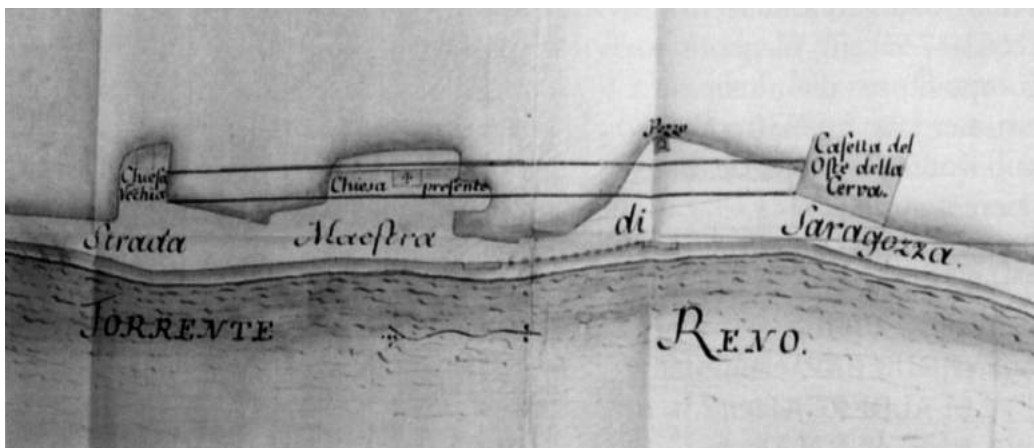 Pozzo
Chiesa
Vechia
Chiesa presente
Casetta del
Oste della
Cerva.
Strada Maestra di Saragozza.
TORRENTE RENO.